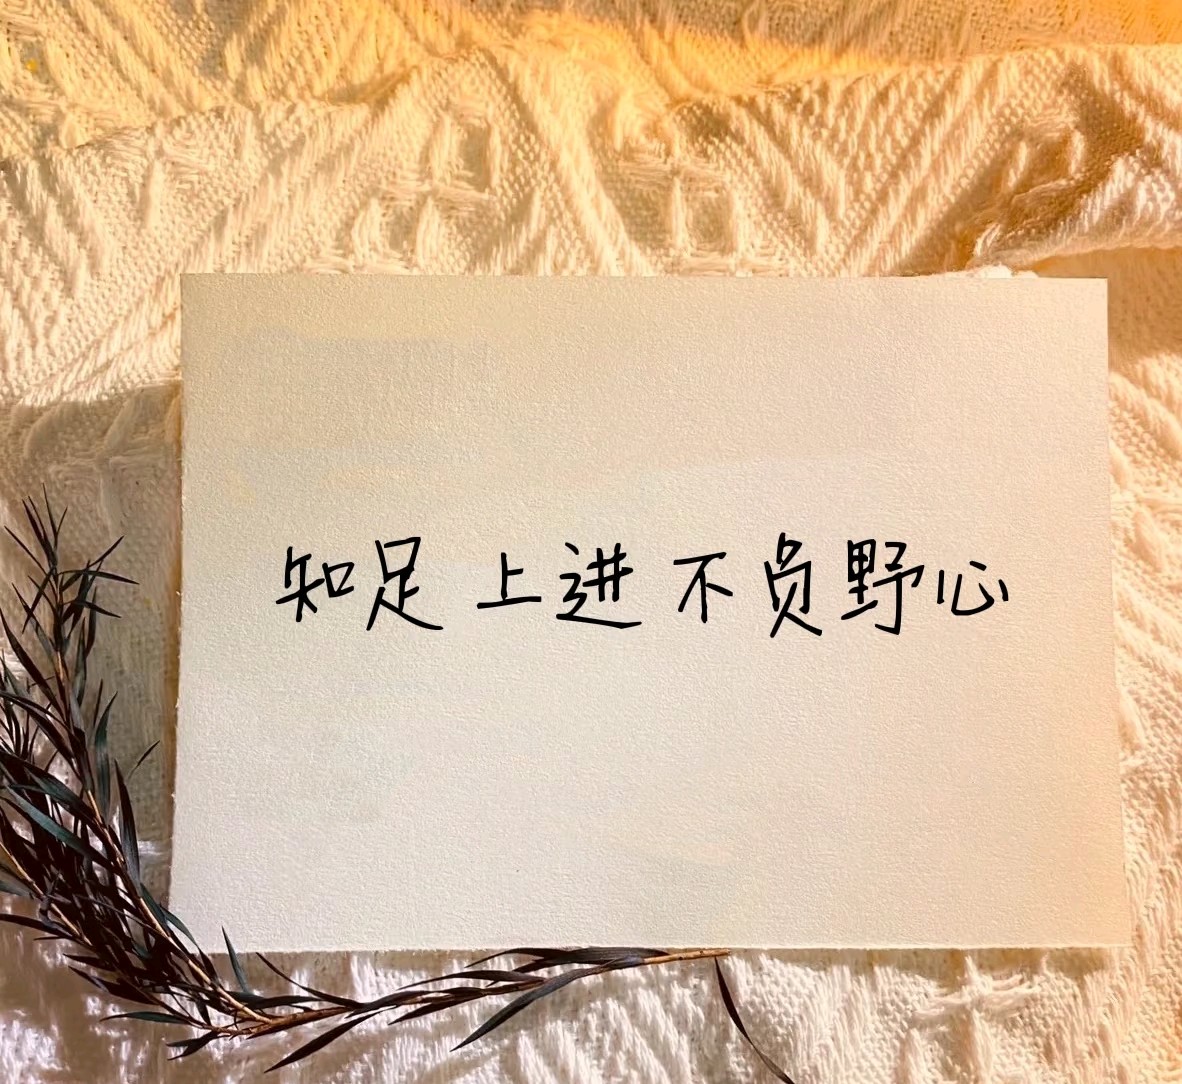 知足上进不负野心